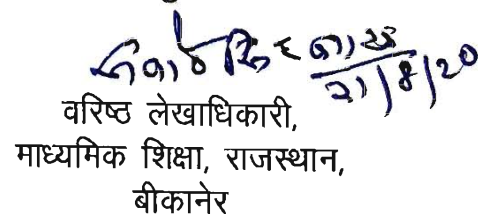 21/8/20
वरिष्ठ लेखाधिकारी,
माध्यमिक शिक्षा, राजस्थान,
बीकानेर